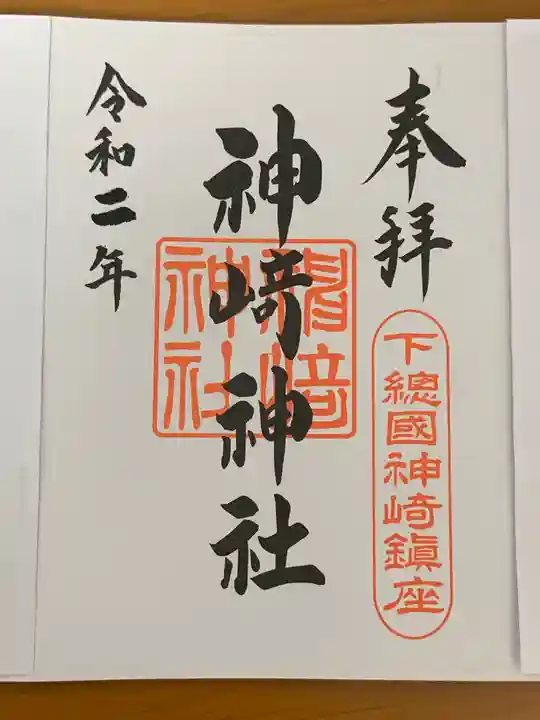 奉拝
下總國神崎鎮座
神崎神社
令和二年